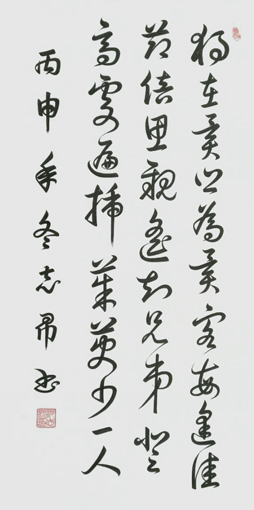 獨在異鄉為異客每逢佳
節倍思親遙知兄弟登
高處遍插茱萸少一人
丙申年冬志書